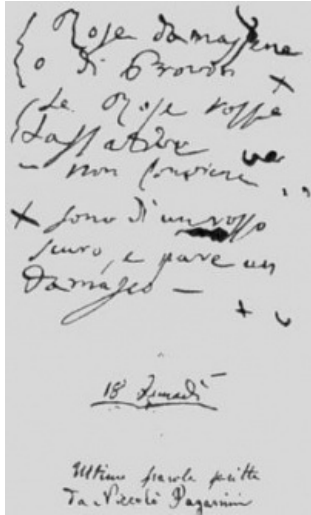 Rose damassene
o di
Le Rose rosse
Lassative
– non conviene
+ sono di un rosso
scuro, e pare un
damasco –
18 Lunedì
Ultime parole scritte
da Niccolò Paganini